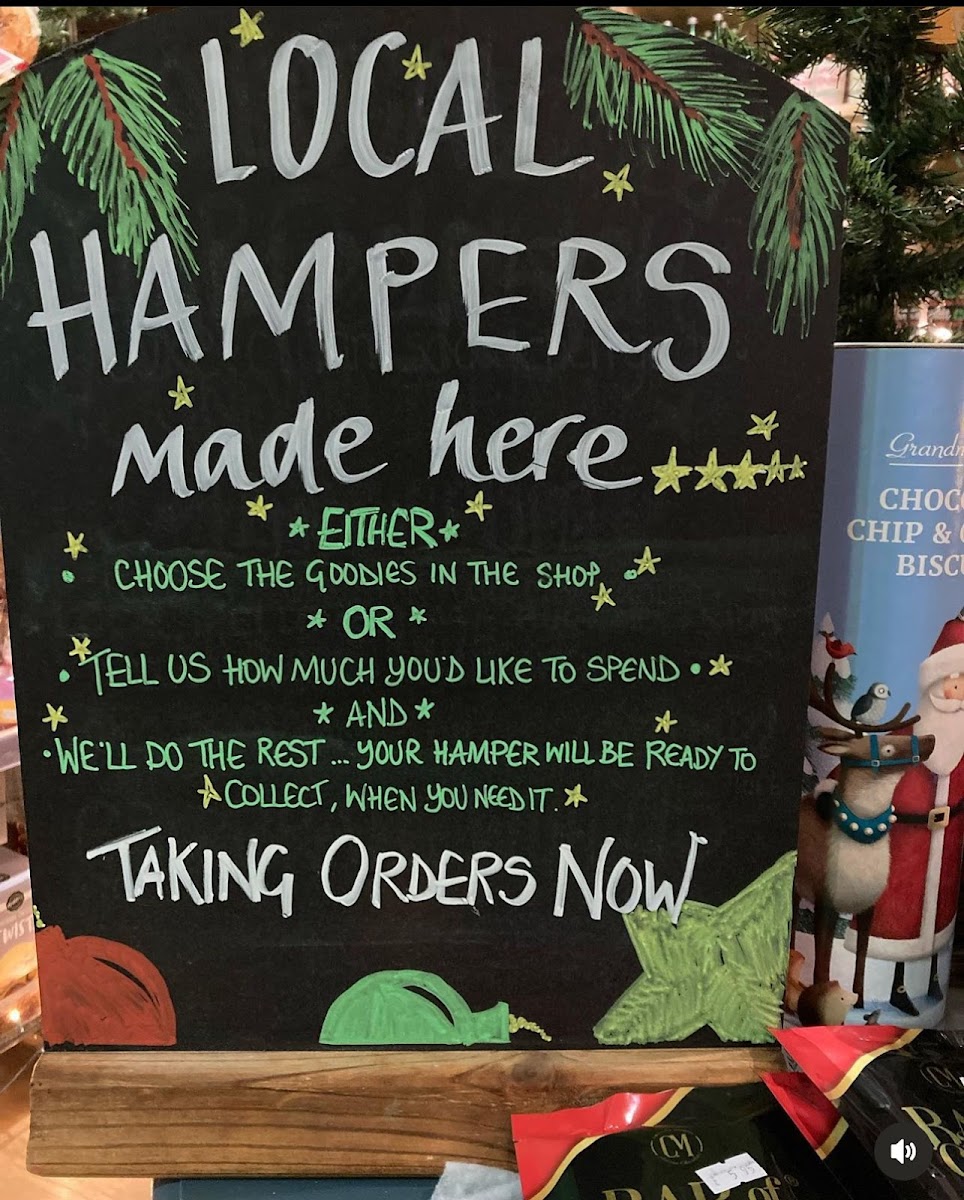 LOCAL
HAMPERS
made here
EITHER
CHOOSE THE GOODIES IN THE SHOP,
OR
TELL US HOW MUCH YOU'D LIKE TO SPEND
AND
WE'LL DO THE REST... YOUR HAMPER WILL BE READY TO
COLLECT, WHEN YOU NEED IT.
TAKING ORDERS NOW
CHIP &
CM